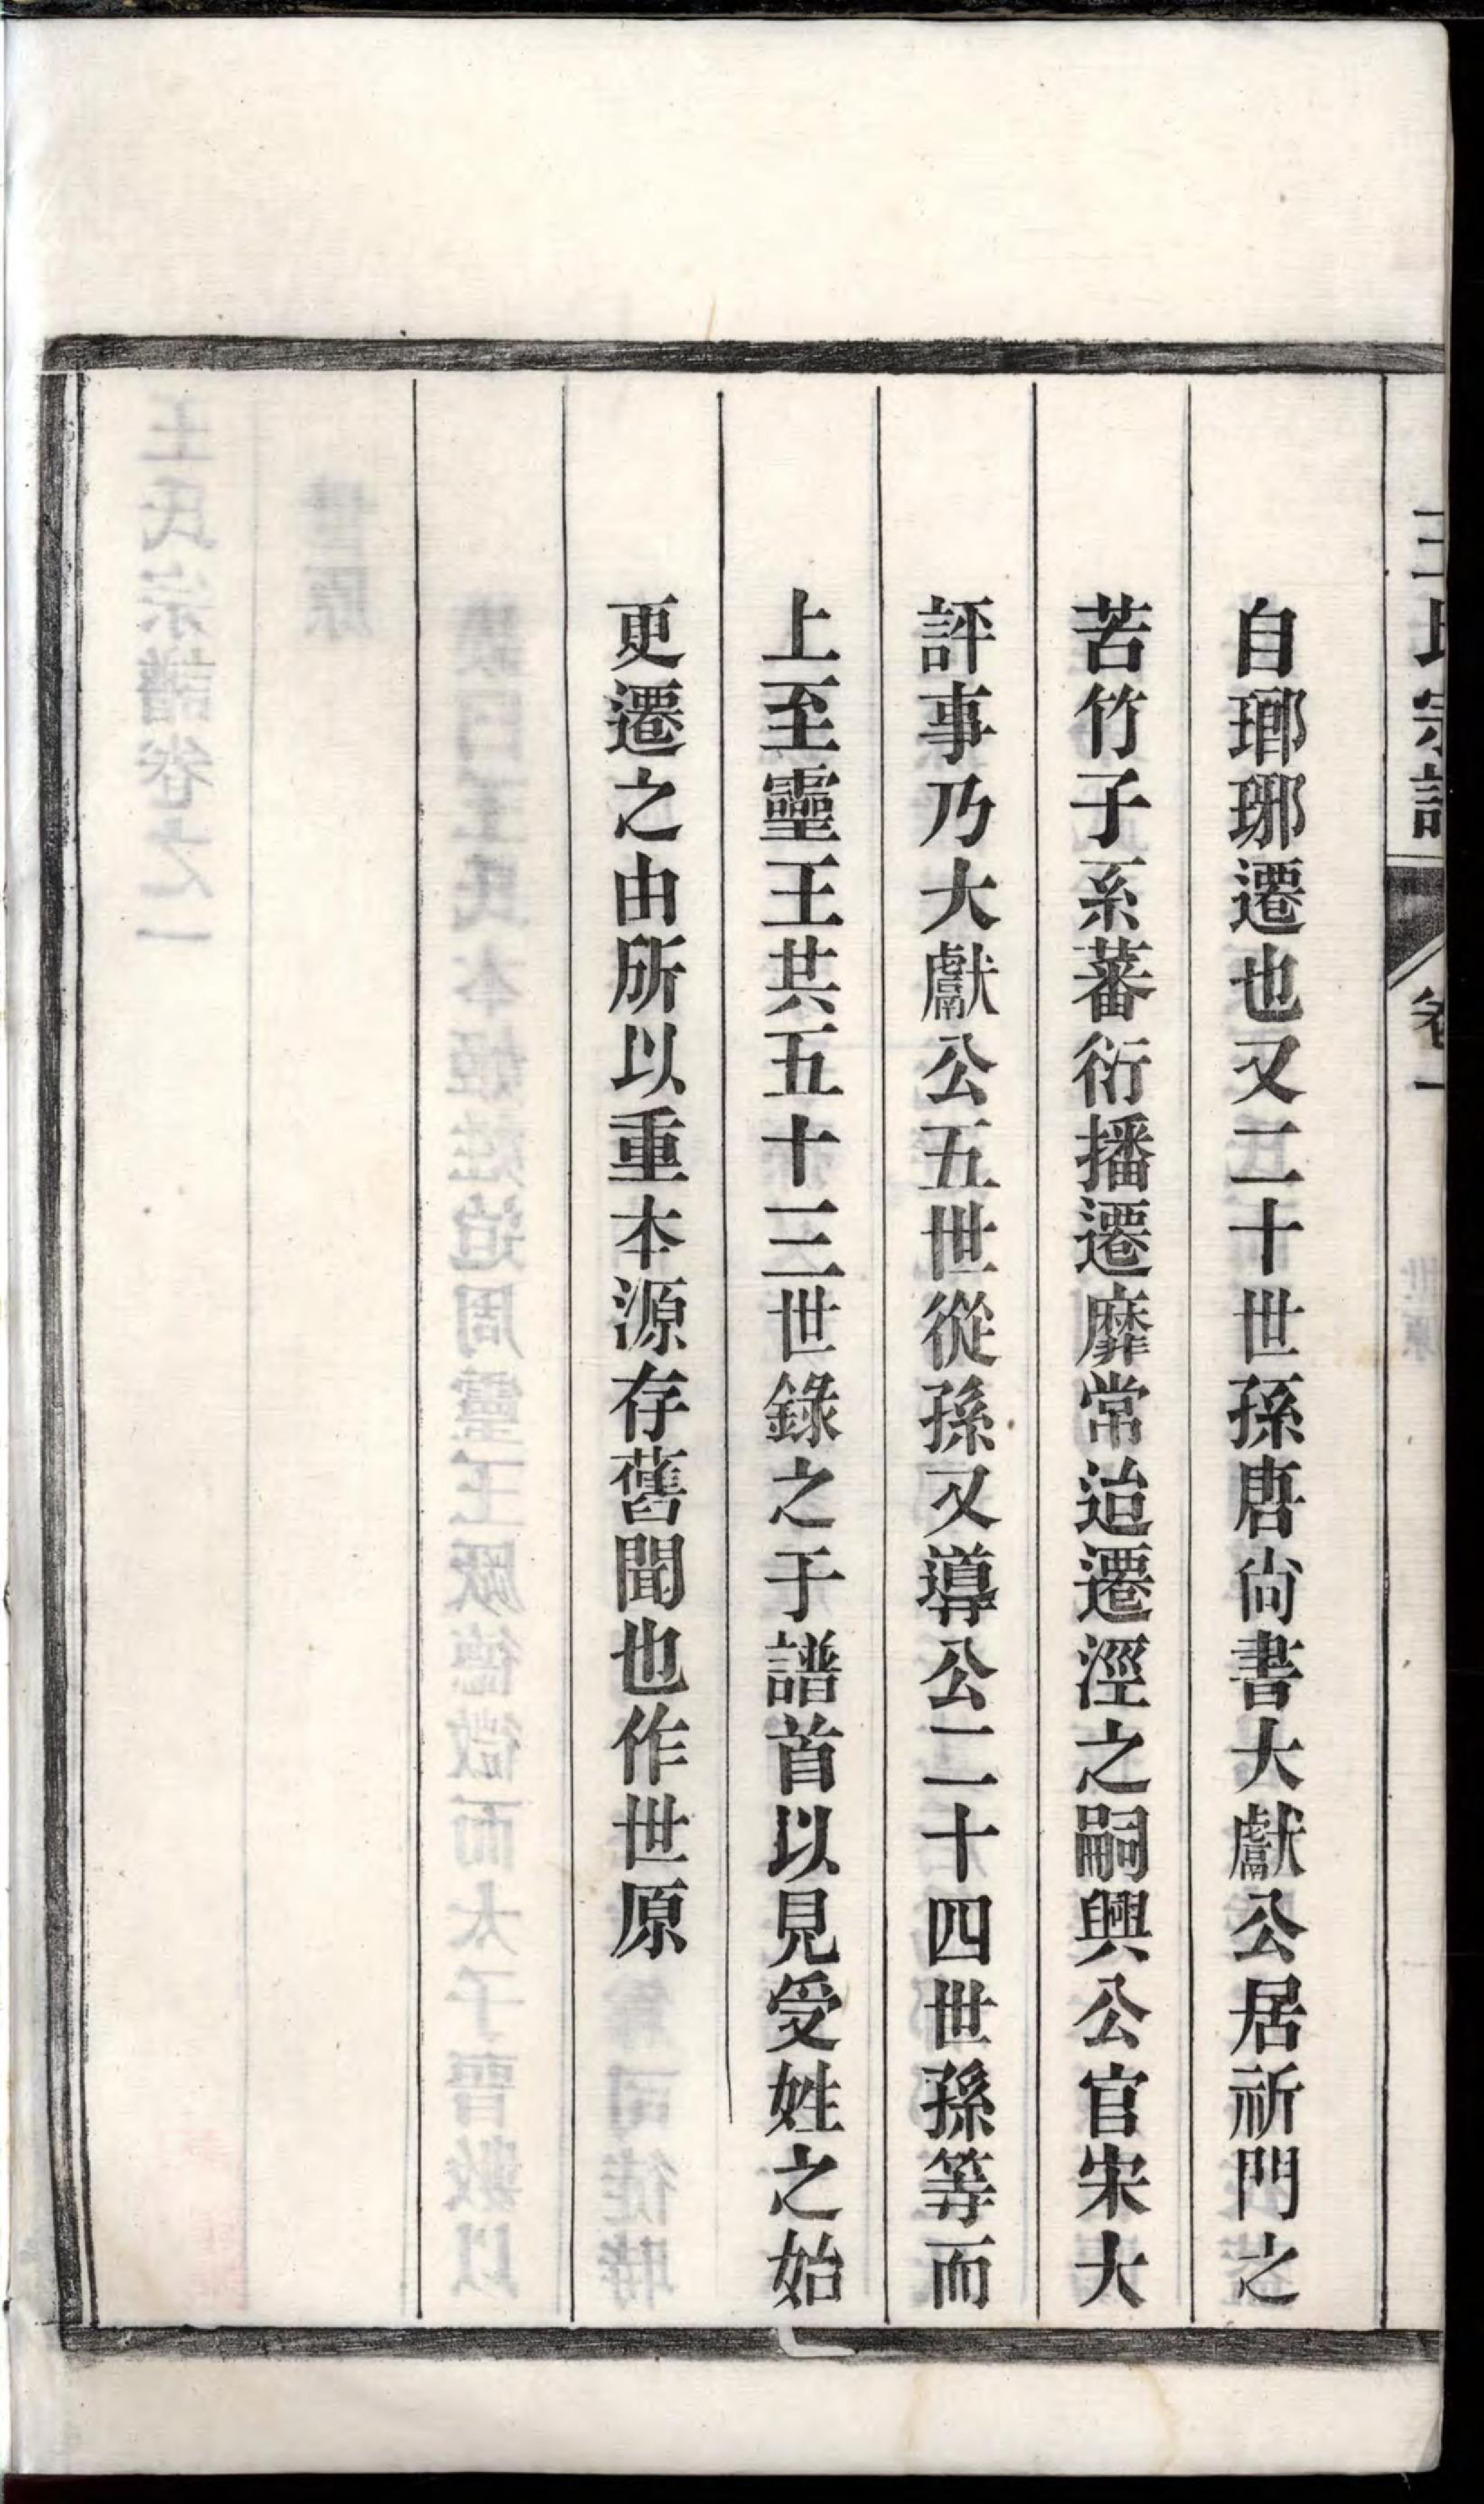 王氏宗譜 卷一
世原
自瑯琊遷也又二十世孫唐尙書大獻公居祈門之
苦竹子系蕃衍播遷靡常迨遷涇之嗣興公官宋大
評事乃大獻公五世從孫又導公二十四世孫等而
上至靈王共五十三世錄之于譜首以見受姓之始
更遷之由所以重本源存舊聞也作世原